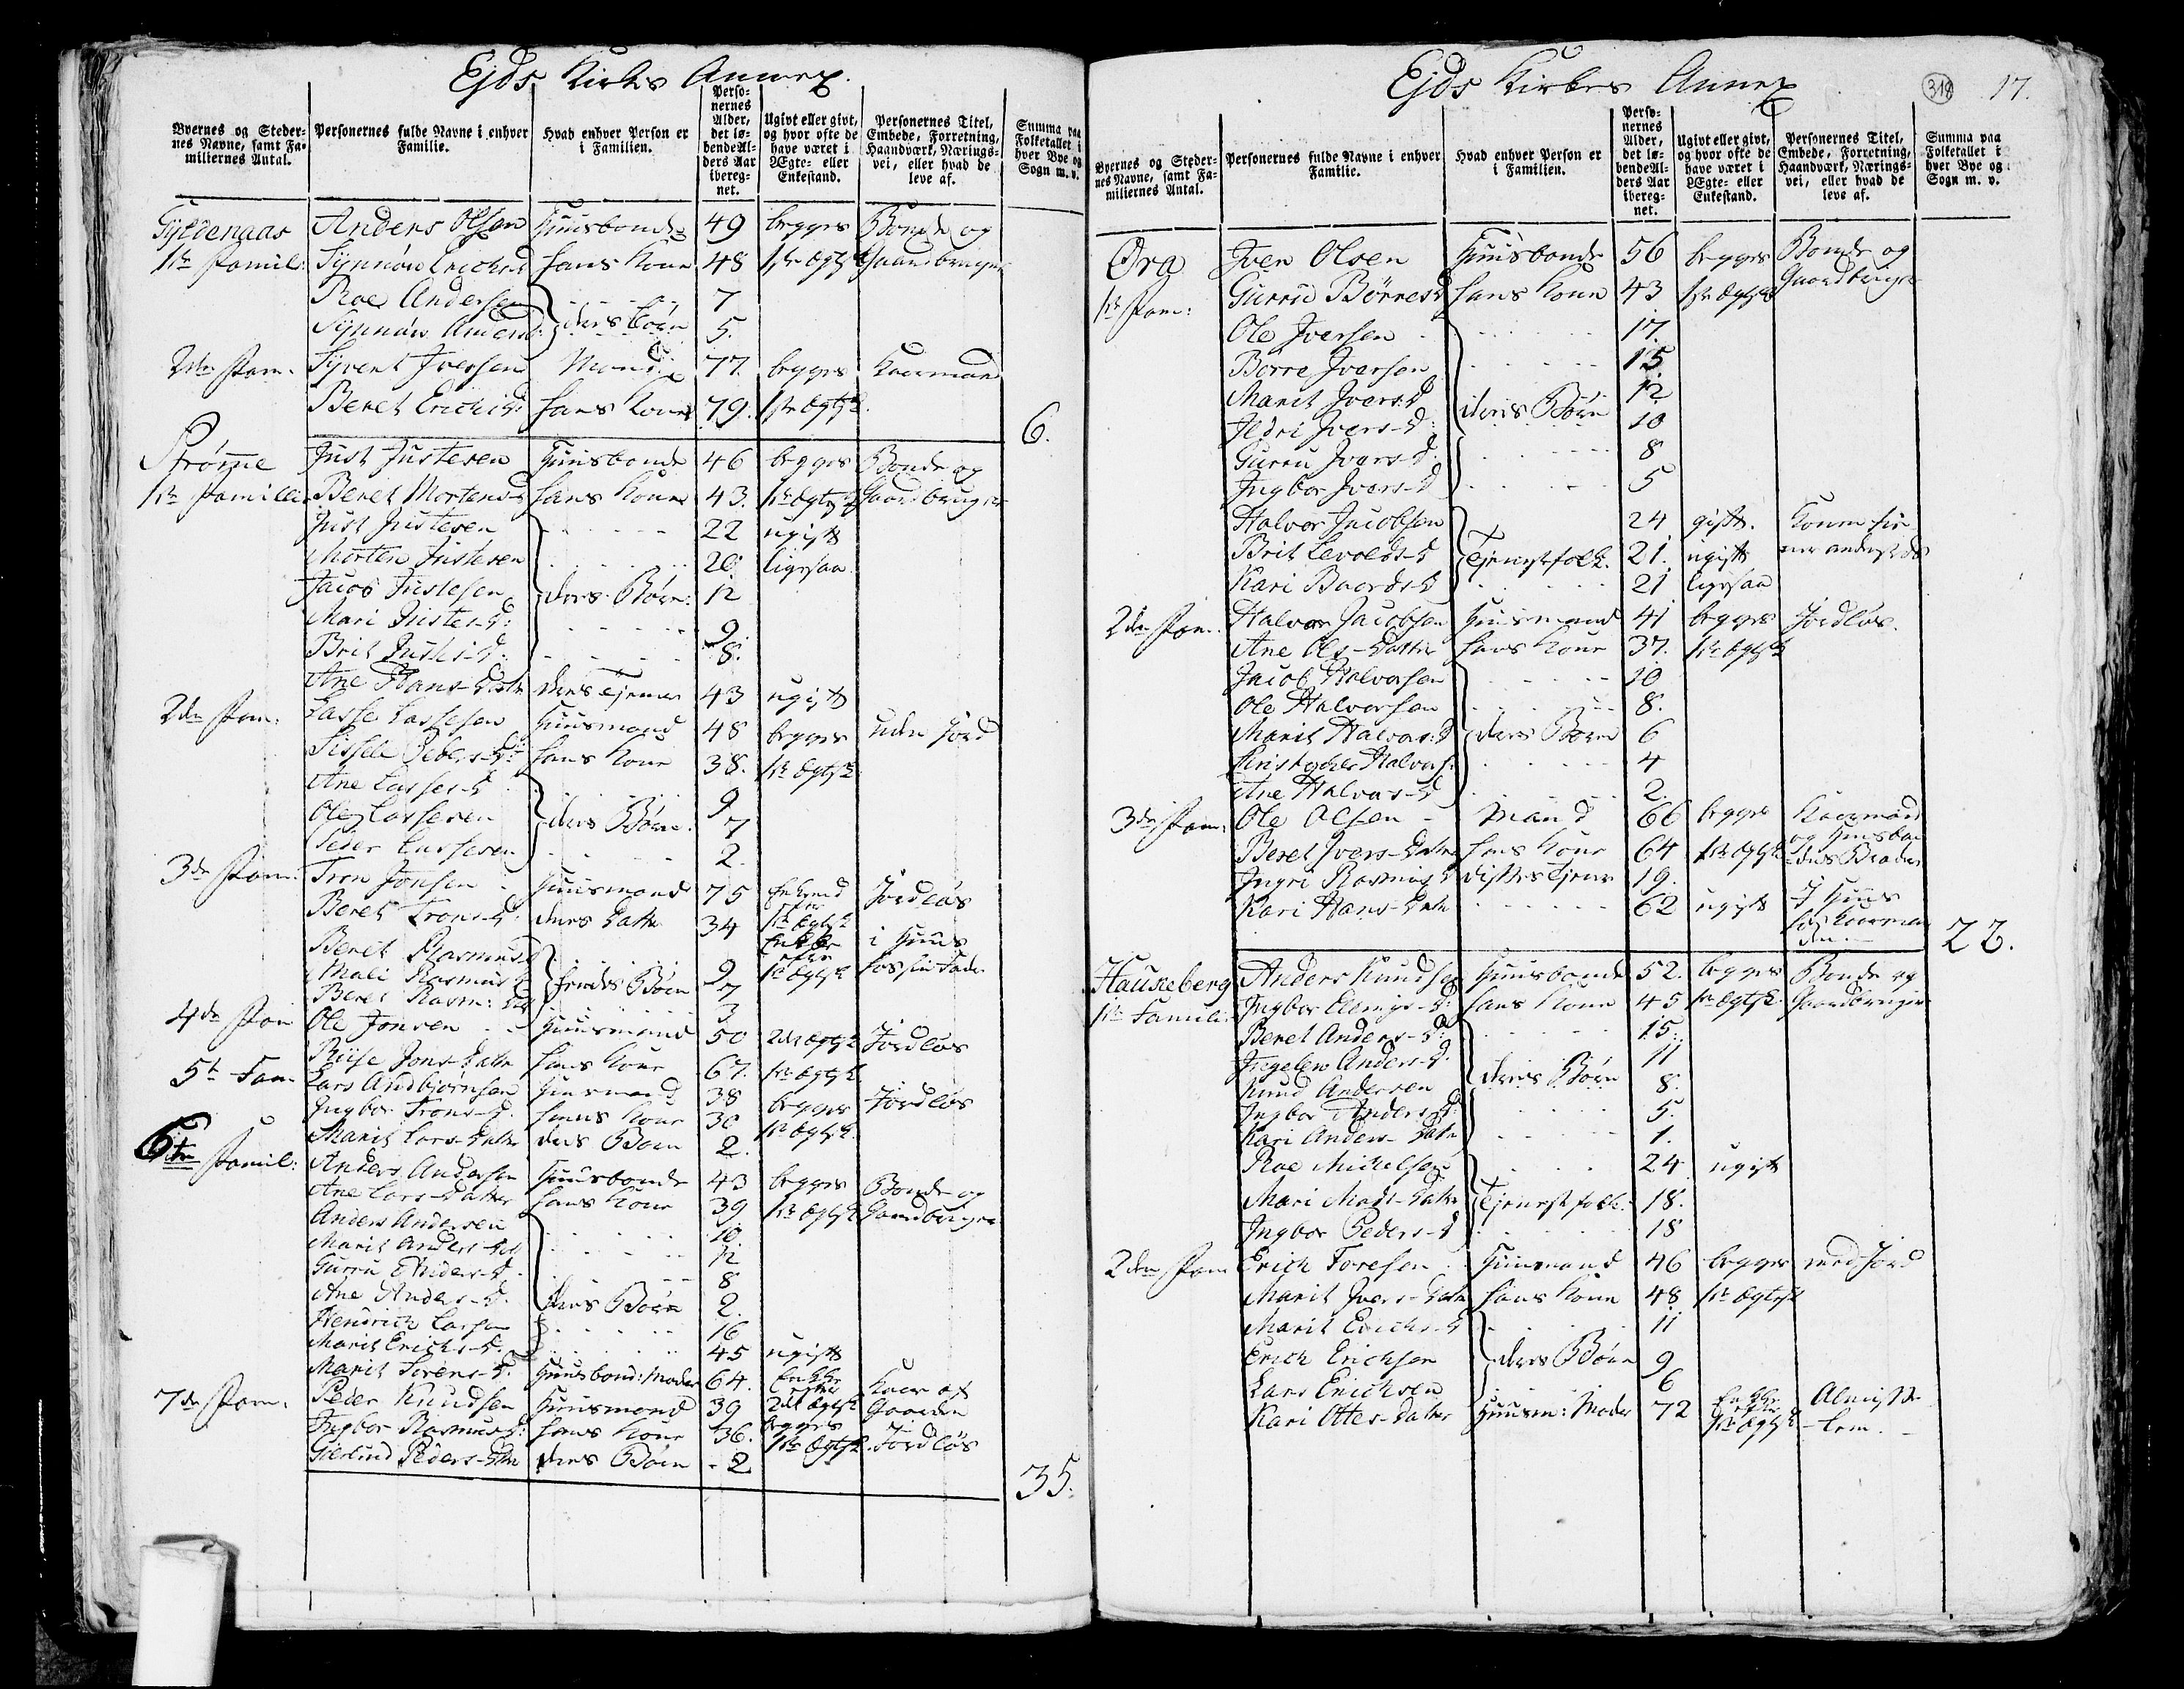 Ejds Kirks Annex.
Byernes og Steder-
nes Navne, samt Fa-
miliernes Antal.
Personernes fulde Navne i enhver
Familie.
Hvad enhver Person er
i Familien.
Perso-
nernes
Alder,
det lø-
bende Al-
ders Aar
ibereg-
net.
Ugivt eller givt,
og hvor ofte de
have været i
Ægte- eller
Enkestand.
Personernes Titel,
Embede, Forretning,
Haandværk, Nærings-
vei, eller hvad de
leve af.
Summa paa
Folketallet i
hver Bye og
Sogn m. v.
Gyldenaas Anders Olsen Huusbonde 49 begges Bonde og
1ste Famil: Synnøv Erichsd hans Kone 48 1ste Ægtsk Gaardbruger
Roe Andersen 7
Synnøv Andersd: deres børn 5.
2den Fam. Syvert Iversen Mand 77. begges Kaarmand
Beret Erichsd: hans Kone 79. 1ste Ægtsk.
6.
Strømme Just Justesen Huusbonde 46 begges Bonde og
1ste Familie Beret Mortensd hans Kone 43. 1ste Ægtsk Gaardbruger
Just Justesen 22 ugift
Morten Justesen 20 ligesaa
Jacob Justesen deres Børn: 12
Mari Justes-d: 9
Brit Justes-d: 8.
Ane Hans-datr deres Tjener 43 ugift
2den Fam. Lasse Lassesen Huusmand 48 begges uden Jord
Sissele Peders-d: hans Kone 38. 1ste Ægtsk
Ane Lasses-d 9
Ole Lassesen deres Børn. 7
Peder Lassesen 2.
3die Fam. Tron Jonsen Huusmand 75 Enkemd Jordløs
efter
Beret Trons-d deres Datter 34 1ste Ægtsk
Enke i Huus
efter
Beret Rasmusd 9 1te Ægtsk hos sin Fader
Mali Rasmusd Hendes Børn 7
Beret Rasm: dtr 3
4de Fam Ole Jonsen Huusmand 50 2det Ægtsk Jordløs
Jons-datr hans Kone 67. 1ste Ægtsk
5te Fam Lars Andbjørnsen Huusmand 38 begges Jordløs
Ingbor Trons-d. hans Kone 30 1ste Ægtsk.
Marit Lars-datr deres Børn 2.
6te Famil: Anders Andersen Huusbonde 43 begges Bonde og
Ane Lars-datter hans Kone 39 1ste Ægtsk Gaardbruger
Anders Andersen 10
Marit Anders-dtr 12
Gurru Anders-d. 8
Ane Anders-d. deres Børn 2.
Hendrich Larsen 16
Marit Erichs-d: 45 ugift
Marit Sørens-d. Huusbond: Moder 64. Enke Kaar af
efter
7de Fam. Peder Knudsen Huusmand 39 2det Ægtsk Gaarden
begges
Ingbor Rasmusd: hans Kone 36. 1ste Ægtsk. Jordløs
Giertrud Peders-dtr deres Børn 2
35.
Ejds Kirkes Annex
318 17.
Byernes og Steder-
nes Navne, samt Fa-
miliernes Antal.
Personernes fulde Navne i enhver
Familie.
Hvad enhver Person er
i Familien.
Perso-
nernes
Alder,
det lø-
bende Al-
ders Aar
ibereg-
net.
Ugivt eller givt,
og hvor ofte de
have været i
Ægte- eller
Enkestand.
Personernes Titel,
Embede, Forretning,
Haandværk, Nærings-
vei, eller hvad de
leve af.
Summa paa
Folketallet i
hver Bye og
Sogn m. v.
Øra Iver Olsen Huusbonde 56 begges Bonde og
1ste Fam: Gurru Børresd hans Kone 43 1ste Ægtsk Gaardbruger
Ole Iversen 17.
Børre Iversen 15
Marit Ivers-d 12
Ildri Ivers-d: deres Børn 10
Gurru Ivers-d 8
Ingbor Ivers-d 5
Halvor Jacobsen 24 gift. Konen tje
Brit Levolds-d Tjenestfolk. 21. ugift ner andenst.
Kari Baards-d 21 ligesaa
2den Fam. Halvor Jacobsen Huusmand 41 begges Jordløs.
Ane Ols-datter hans Kone 37. 1ste Ægtsk
Jacob Halvorsen 10
Ole Halvorsen 8.
Marit Halvor:d deres Børn 6
Halvors. 4
Ane Halvors-d 2.
3die Fam: Ole Olsen Mand 66 begges Kaarmand
og Huusbon
Beret Ivers-datr hans Kone 64 1ste Ægtsk dens Broder
Ingri Rasmusd disses Tjener 19.
Kari Hans-datr 62 ugift I Huus
hos Kaarman
den.
22.
Hauseberg Anders Knudsen Huusbonde 52. begges Bonde og
1ste Famili: Ingbor Elling-d: hans Kone 45 1ste Ægtsk. Gaardbruger
Beret Anders-d: 15.
Ingeleu Anders-d. 11
Knud Andersen deres Børn 8.
Ingbor Anders-d: 5.
Kari Anders-datr 1.
Roe Mickelsen 24 ugift
Mari Mads-datr Tjenestfolk. 18.
Ingbor Peders-d 18
2den Fam Erich Toresen Huusmand 46 begges med Jord
Marit Ivers-datr hans Kone 48 1ste Ægtsk
Marit Erichs-d 11
Erich Erichsen deres Børn 9
Lars Erichsen 6
Kari Ottes-datter Huusm: Moder 72 Enke Almisse-
efter
1ste Ægtsk -lem.